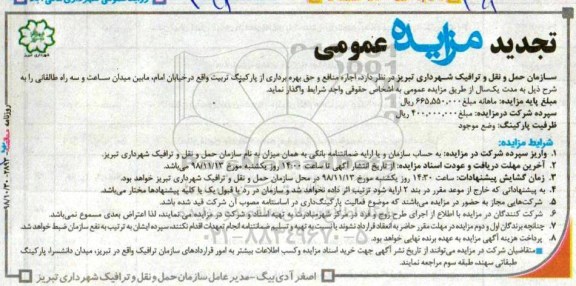 تجدید مزایده عمومی
سازمان حمل و نقل و ترافیک شهرداری تبریز در نظر دارد، اجاره منافع و حق بهره برداری از پارکینگ تربیت واقع درخیابان امام، مابین میدان ساعت و سه راه طالقانی را به
شرح ذیل به مدت یکسال از طریق مزایده عمومی به اشخاص حقوقی واجد شرایط واگذار نماید.
مبلغ پایه مزایده: ماهانه مبلغ ۶۶۵,۵۵۰,۰۰۰ ریال
سپرده شرکت درمزایده: ۴۰۰,۰۰۰,۰۰۰ ریال
ظرفیت پارکینگ: وضع موجود
شرایط مزایده:
۱. واریز سپرده شرکت در مزایده: به حساب سازمان و یا ارایه ضمانتنامه بانکی به همان میزان به نام سازمان حمل و نقل و ترافیک شهرداری تبریز.
۲. آخرین مهلت دریافت و عودت اسناد مزایده: از تاریخ انتشار آگهی تا ساعت ۱۴:۰۰ روز یکشنبه مورخ ۹۸/۱۱/۱۳ می‌باشد.
۳. زمان گشایش پیشنهادات: ساعت ۱۴:۳۰ روز یکشنبه مورخ ۹۸/۱۱/۱۳ در محل سازمان حمل و نقل و ترافیک شهرداری تبریز خواهد بود.
۴. به پیشنهاداتی که خارج از موعد مقرر در بند ۲ ارایه شود ترتیب اثر داده نخواهد شد و سازمان در رد یا قبول یک یا کلیه پیشنهادها مختار می‌باشد.
۵. شرکت‌هایی مجاز به حضور در مزایده می‌باشند که موضوع فعالیت پارکینگ‌داری در اساسنامه مصوب آن شرکت قید شده باشد.
۶. شرکت کنندگان در مزایده با اطلاع از اجرای طرح زوج و فرد در مرکز شهر مبادرت به تهیه اسناد و شرکت در مزایده می‌نمایند، لذا اعتراض بعدی مسموع نمی‌باشد.
۷. چنانچه برندگان اول و دوم مزایده در مهلت مقرر حاضر به انعقاد قرارداد نشوند یا نسبت به تهیه و تسلیم ضمانتنامه انجام تعهدات اقدام نکنند، سپرده ایشان به ترتیب به نفع سازمان ضبط خواهد شد.
۸. پرداخت هزینه آگهی مزایده به عهده برنده نهایی خواهد بود.
متقاضیان شرکت در مزایده می‌توانند از تاریخ نشر آگهی جهت خرید اسناد مزایده و کسب اطلاعات بیشتر به امور قراردادهای سازمان ترافیک واقع در تبریز، میدان دانشسرا، پارکینگ
طبقاتی سهند، طبقه سوم مراجعه نمایند.
اصغر آدی بیگ - مدیر عامل سازمان حمل و نقل و ترافیک شهرداری تبریز
۰۲۱-۸۸۳۴۹۶۷۰-۵